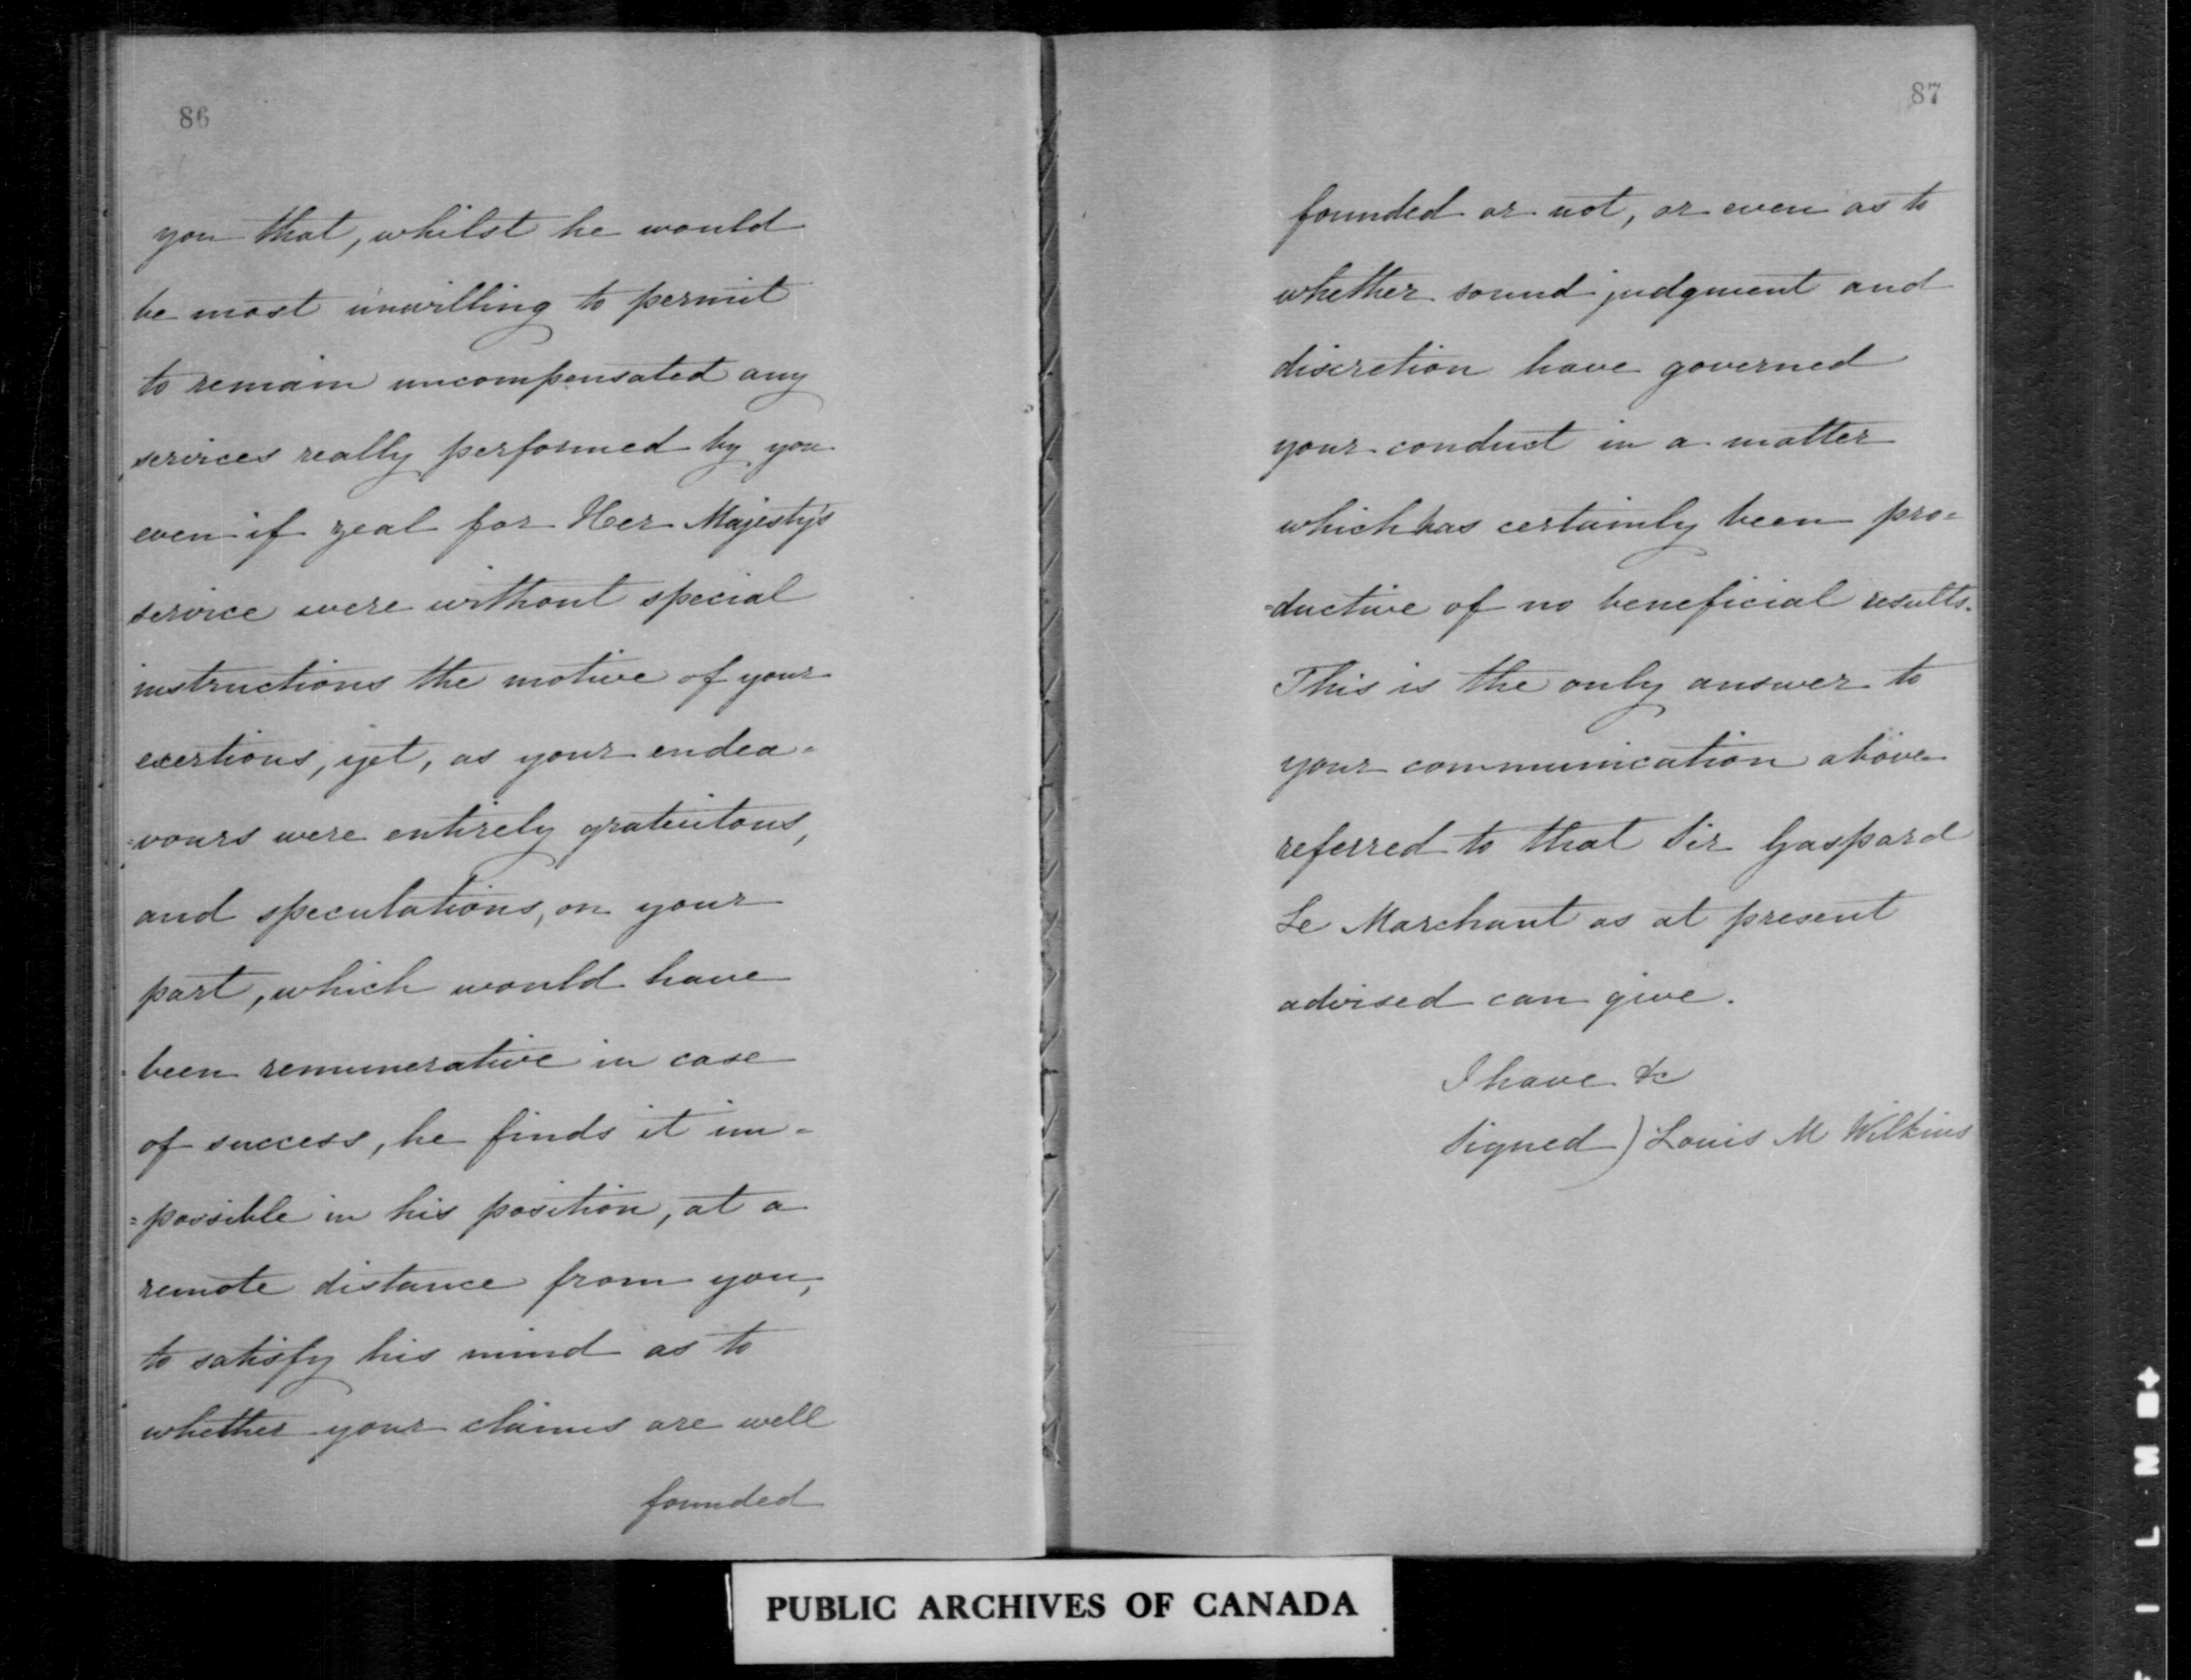 86
you that, whilst he would
be most unwilling to permit
to remain uncompensated any
services really performed by you
even if zeal for Her Majesty's
service were without special
instructions the motive of your
exertions, yet, as your endea-
=vours were entirely gratuitous,
and speculations, on your
part, which would have
been remunerative in case
of success, he finds it im-
=possible in his position, at a
remote distance from you,
to satisfy his mind as to
whether your claims are well
founded
87
founded or not, or even as to
whether sound judgment and
discretion have governed
your conduct in a matter
which has certainly been pro=
=ductive of no beneficial results.
This is the only answer to
your communication above
referred to that Sir Gaspard
Le Marchant as at present
advised can give.
I have &c
Signed) Louis M Wilkins
PUBLIC ARCHIVES OF CANADA
F I L M